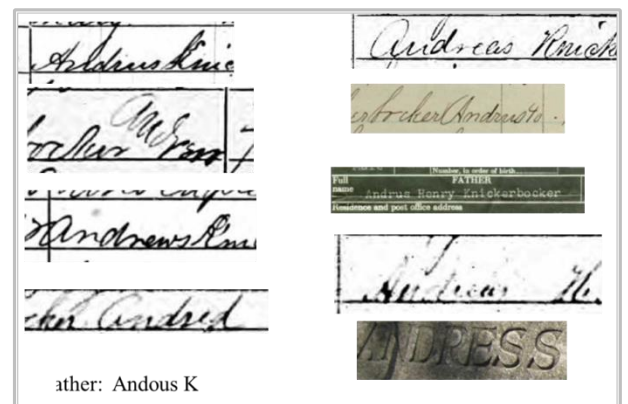 Andrius Knic
ocker Andrew
Andrews Kni
cker Andred
ather: Andous K
Andreas Knick
erbocker Andrus
Number, in order of birth
Full name FATHER
Andrus Henry Knickerbocker
Residence and post office address
Andreas H.
ANDRESS